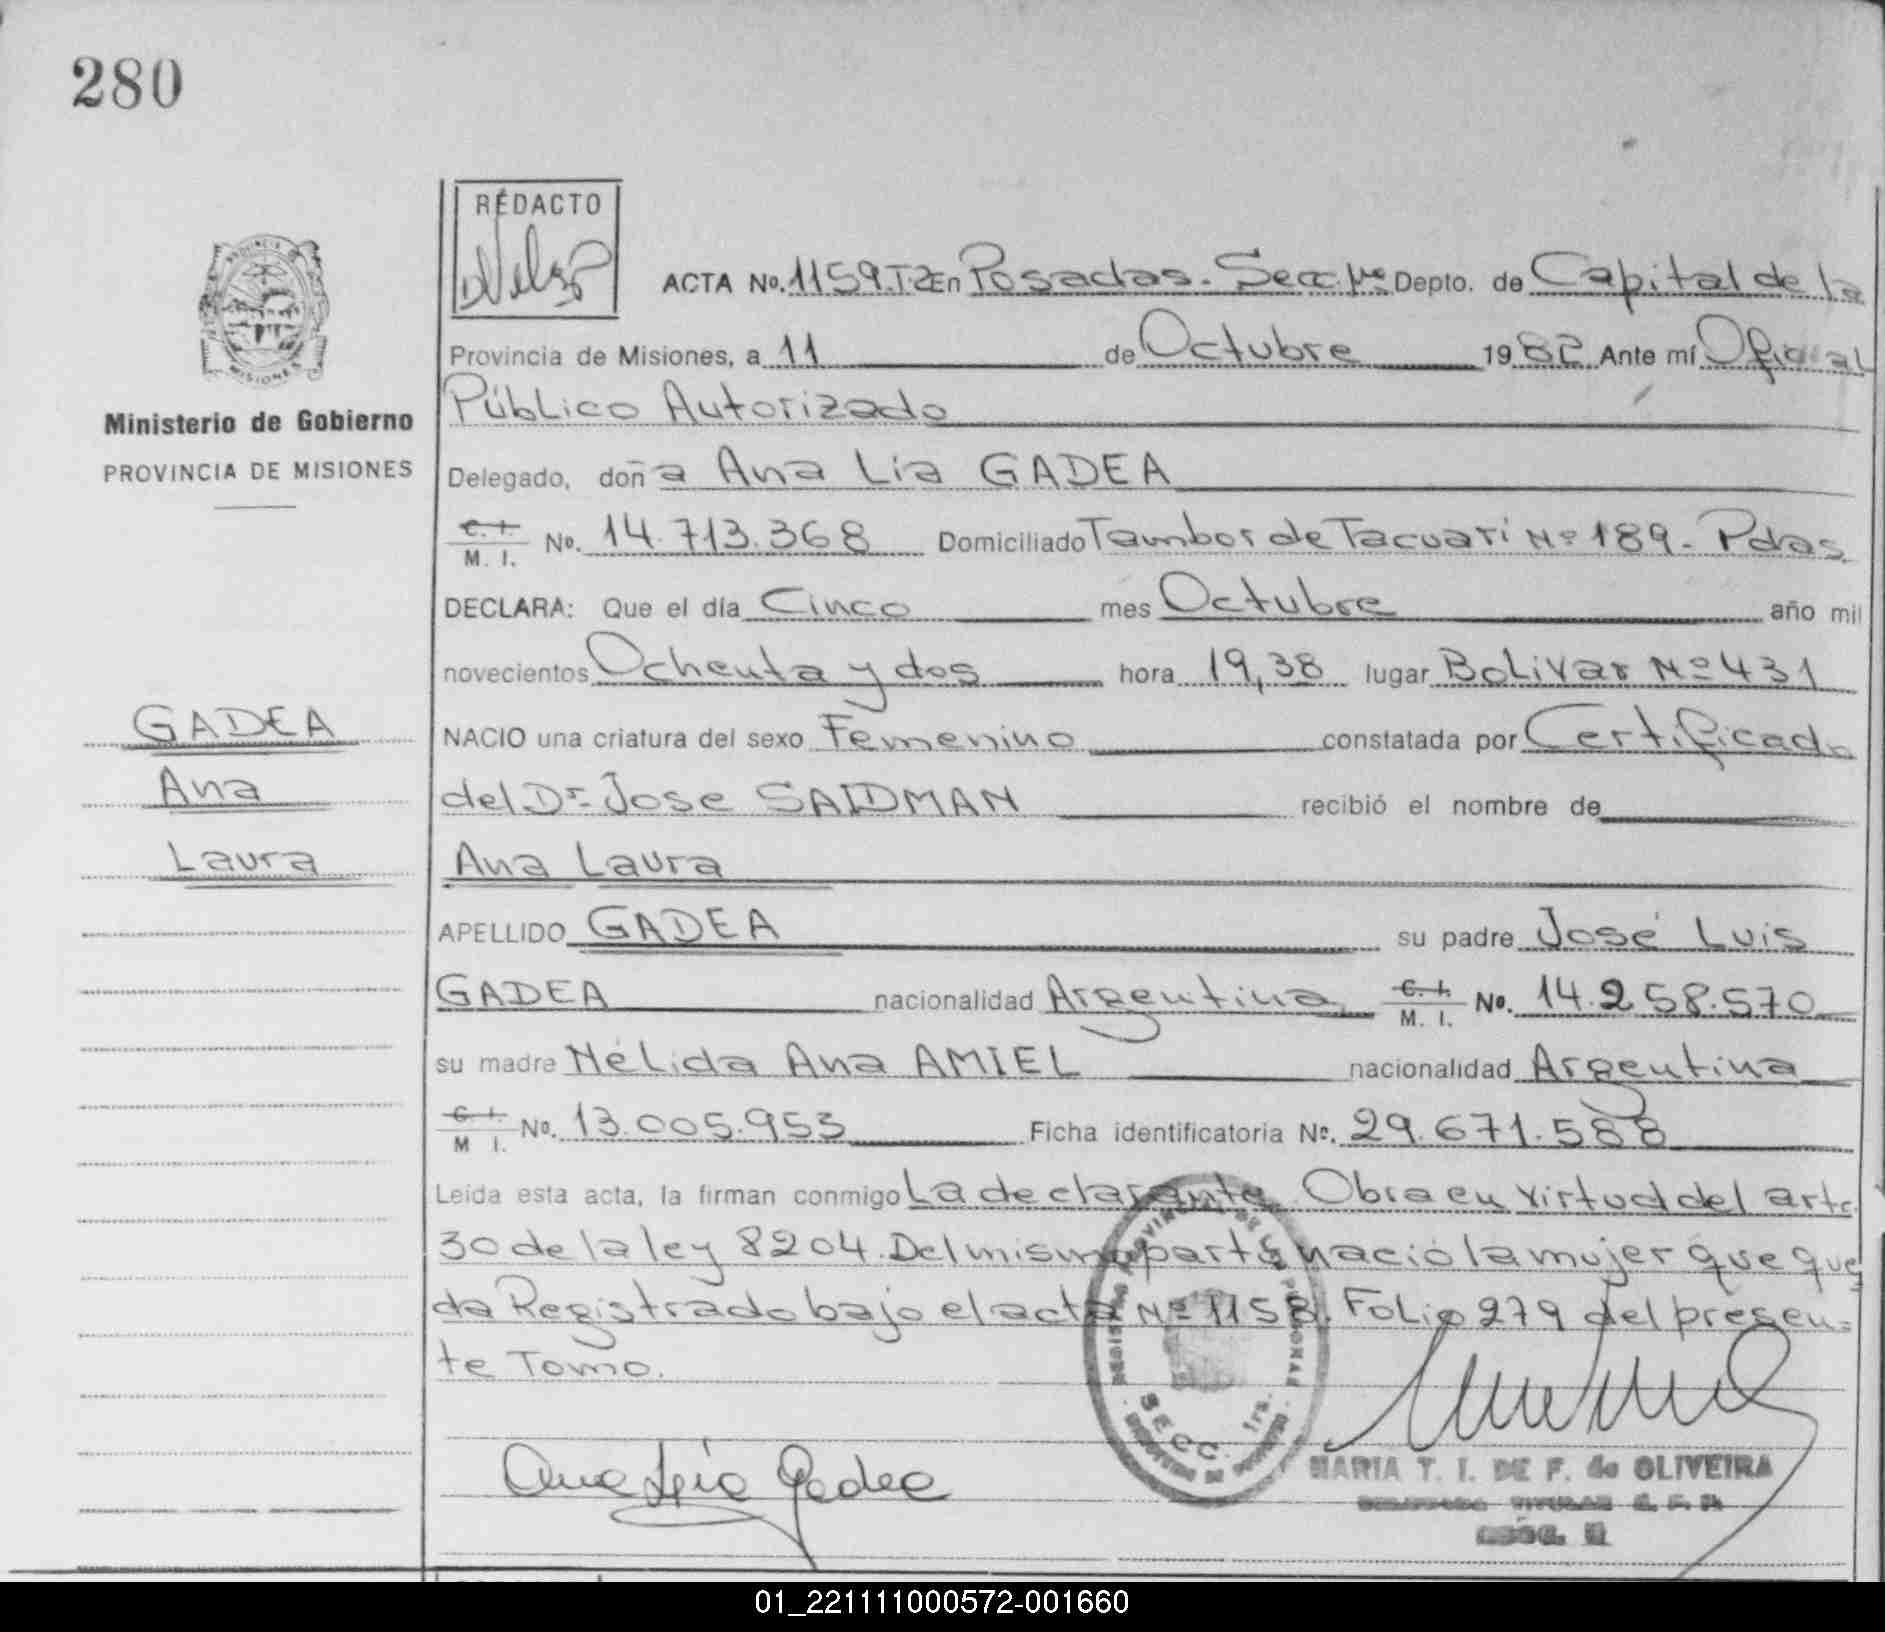 280
REDACTO
ACTA No. 1159.T2 En Posadas. Secc. 1ra Depto. de Capital de la
Provincia de Misiones, a 11 de Octubre 1982 Ante mí Oficial
Público Autorizado
Ministerio de Gobierno
PROVINCIA DE MISIONES
Delegado, doña Ana Lia GADEA
C. I. M. I. No. 14.713.368 Domiciliado Tambor de Tacuari Nº 189. Pdas.
DECLARA: Que el día Cinco mes Octubre año mil
novecientos Ochenta y dos hora 19,38 lugar Bolivar Nº 431
NACIO una criatura del sexo Femenino constatada por Certificado
del Dr. Jose SAIDMAN recibió el nombre de
Ana Laura
APELLIDO GADEA su padre José Luis
GADEA nacionalidad Argentina C. I. M. I. No. 14.258.570
su madre Nélida Ana AMIEL nacionalidad Argentina
C. I. M. I. No. 13.005.953 Ficha identificatoria No. 29.671.588
Leída esta acta, la firman conmigo La declarante. Obra en virtud del artc.
30 de la ley 8204. Del mismo parto nació la mujer que que
da Registrado bajo el acta Nº 1158. Folio 279 del presen-
te Tomo.
GADEA
Ana
Laura
Ana Lia Gadea
SECC. 1ra.
MARIA T. I. DE F. de OLIVEIRA
01_221111000572-001660